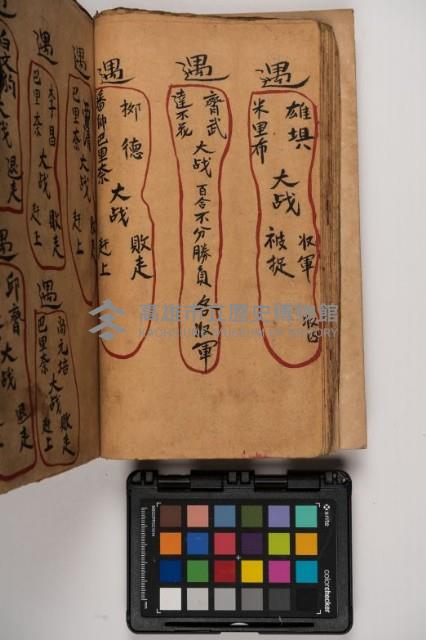 遇
雄垻
米里布
大战
被捉
収軍
遇
齊武
達不花
大战
百合不分勝負
各収軍
遇
柳德
潘卿巴里奈
大战
敗走
赶上
遇
巴里奈
大战
敗走
赶上
遇
李昌
巴里奈
大战
敗走
赶上
遇
尚元培
巴里奈
大战
敗走
赶上
大战
退走
遇
邱齊
大战
退走
高雄市立歷史博物館
KAOHSIUNG MUSEUM OF HISTORY
x-rite
colorchecker